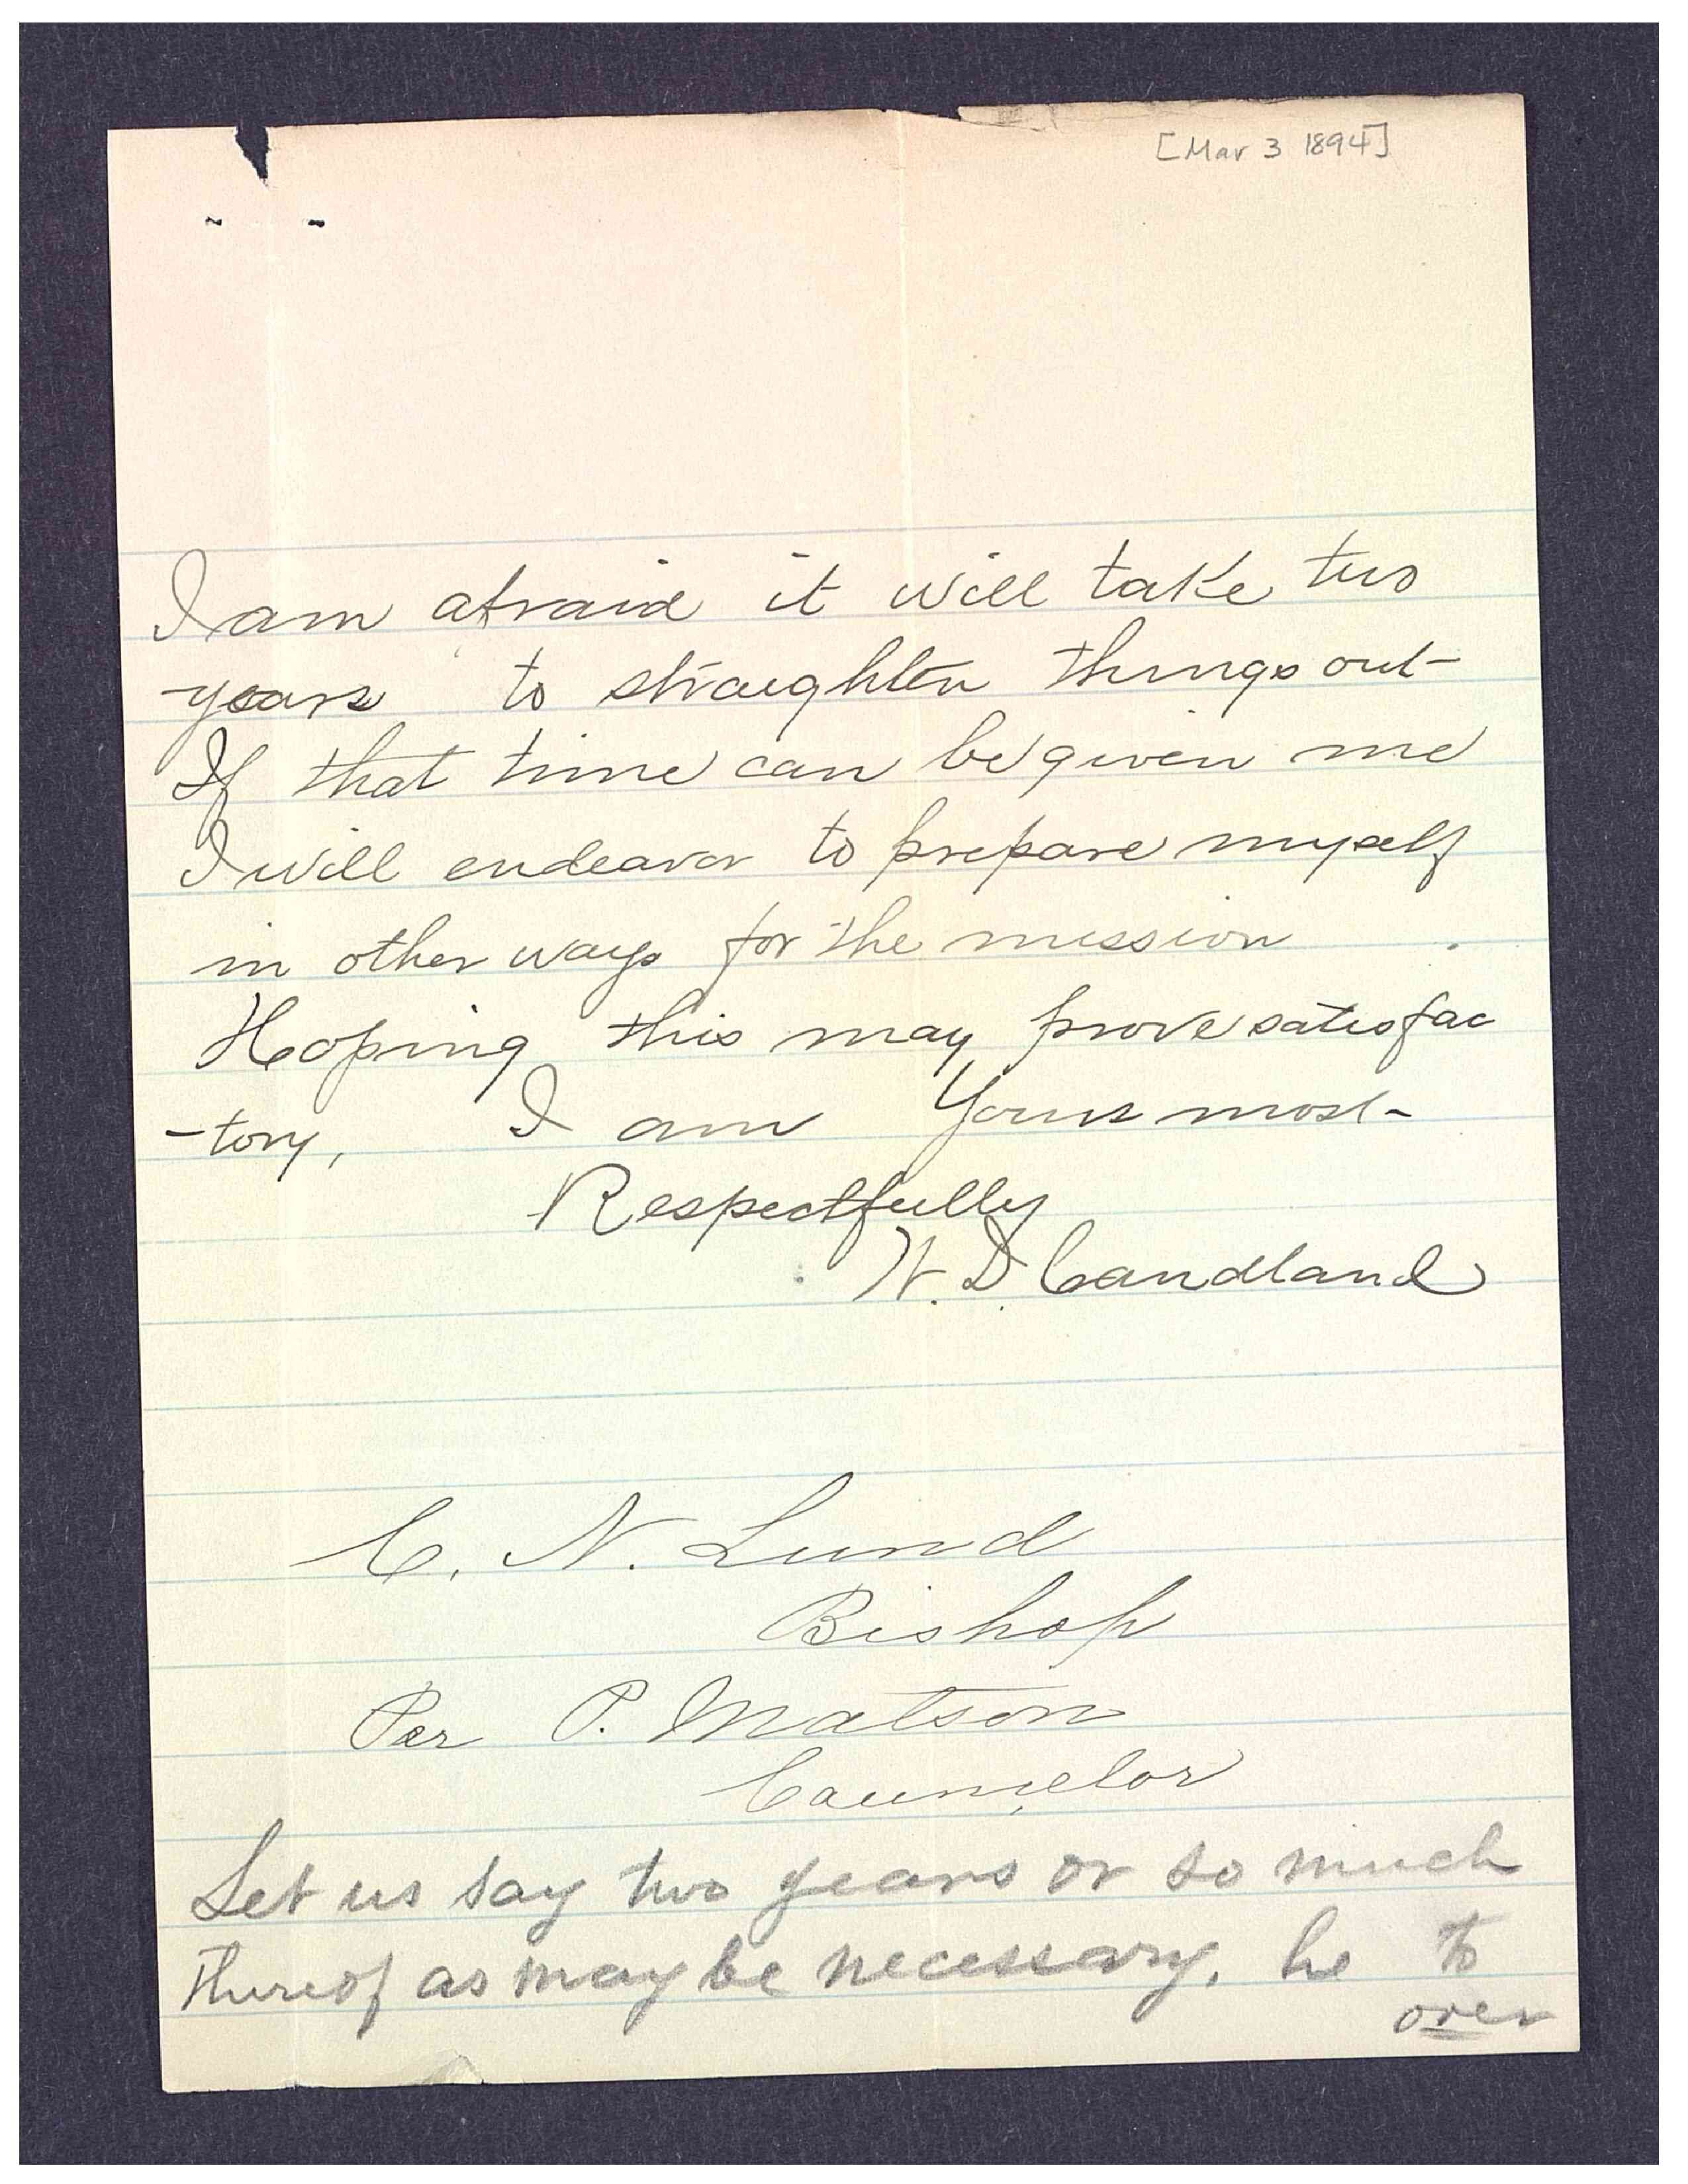 [Mar 3 1894]
I am afraid it will take two
years to straighten things out-
If that time can be given me
I will endeavor to prepare myself
in other ways for the mission
Hoping this may prove satisfac
-tory, I am Yours most-
Respectfully
W. D. Candland
C. N. Lund
Bishop
Per P. Matson
Counselor
Let us say two years or so much
thereof as may be necessary, he to
over